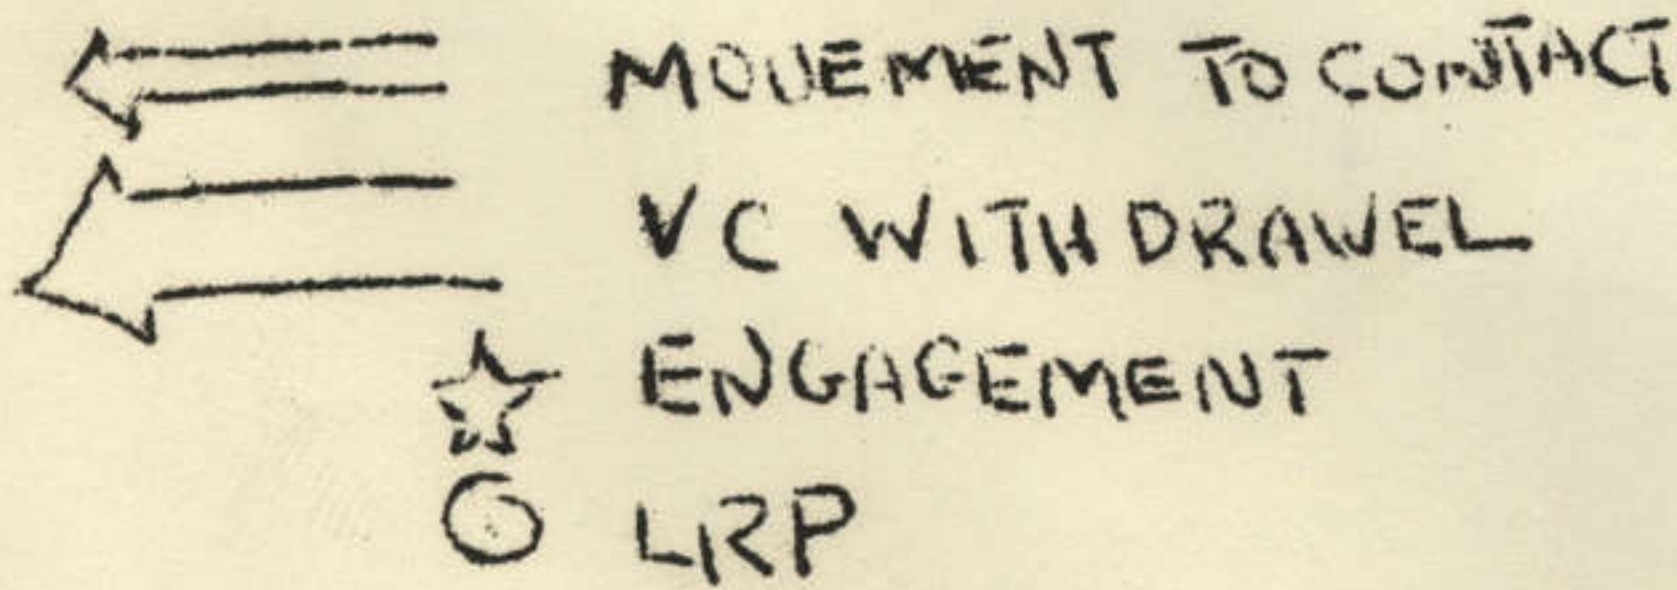 MOVEMENT TO CONTACT
VC WITHDRAWEL
ENGAGEMENT
LRP